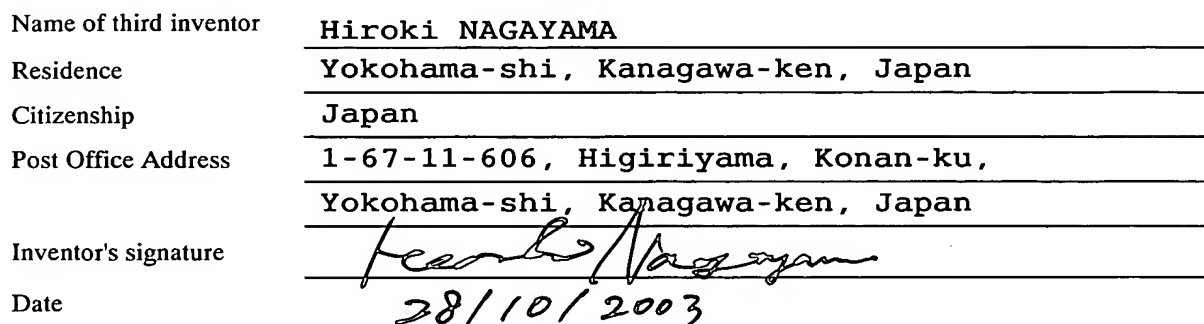 Name of third inventor Hiroki NAGAYAMA
Residence Yokohama-shi, Kanagawa-ken, Japan
Citizenship Japan
Post Office Address 1-67-11-606, Higiriyama, Konan-ku,
Yokohama-shi, Kanagawa-ken, Japan
Inventor's signature Nagayama
Date 28/10/2003